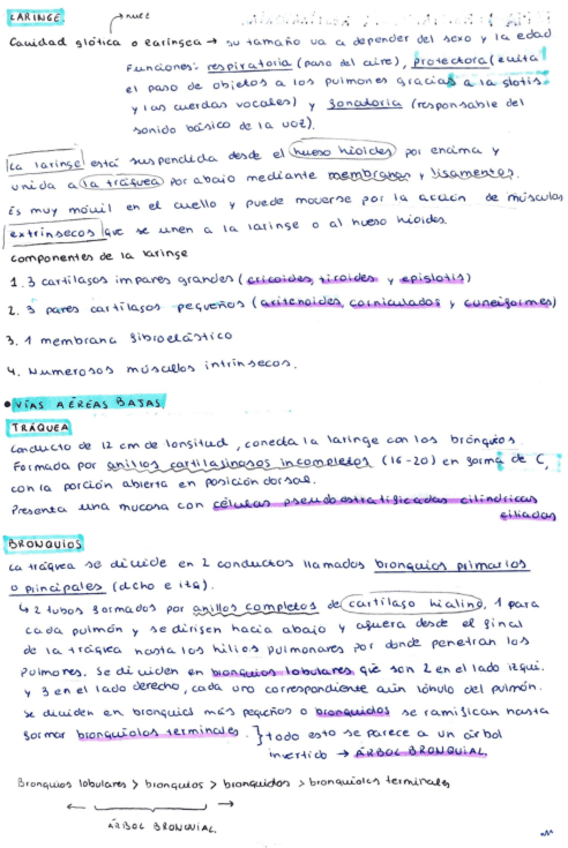 LARINGE → nuez
Cavidad glótica o laríngea → su tamaño va a depender del sexo y la edad
Funciones: respiratoria (paso del aire), protectora (evita
el paso de objetos a los pulmones gracias a la glotis
y las cuerdas vocales) y fonatoria (responsable del
sonido básico de la voz).
La laringe está suspendida desde el hueso hioides por encima y
unida a la tráquea por abajo mediante membranas y ligamentos.
Es muy móvil en el cuello y puede moverse por la acción de músculos
extrínsecos que se unen a la laringe o al hueso hioides.
Componentes de la laringe
1. 3 cartílagos impares grandes (cricoides, tiroides y epiglotis)
2. 3 pares cartílagos pequeños (aritenoides, corniculados y cuneiformes)
3. 1 membrana fibroelástico
4. Numerosos músculos intrínsecos.
• VÍAS AÉREAS BAJAS
TRÁQUEA
Conducto de 12 cm de longitud, conecta la laringe con los bronquios.
Formada por anillos cartilaginosos incompletos (16-20) en forma de C,
con la porción abierta en posición dorsal.
Presenta una mucosa con células pseudoestratificadas cilíndricas
ciliadas
BRONQUIOS
La tráquea se divide en 2 conductos llamados bronquios primarios
o principales (dcho e izq).
↳ 2 tubos formados por anillos completos de cartílago hialino, 1 para
cada pulmón y se dirigen hacia abajo y afuera desde el final
de la tráquea hasta los hilios pulmonares por donde penetran los
pulmones. Se dividen en bronquios lobulares que son 2 en el lado izqui.
y 3 en el lado derecho, cada uno correspondiente a un lóbulo del pulmón.
Se dividen en bronquios más pequeños o bronquiolos se ramifican hasta
formar bronquiolos terminales. } todo esto se parece a un árbol
invertido → ÁRBOL BRONQUIAL.
Bronquios lobulares > bronquios > bronquiolos > bronquiolos terminales
← →
ÁRBOL BRONQUIAL.